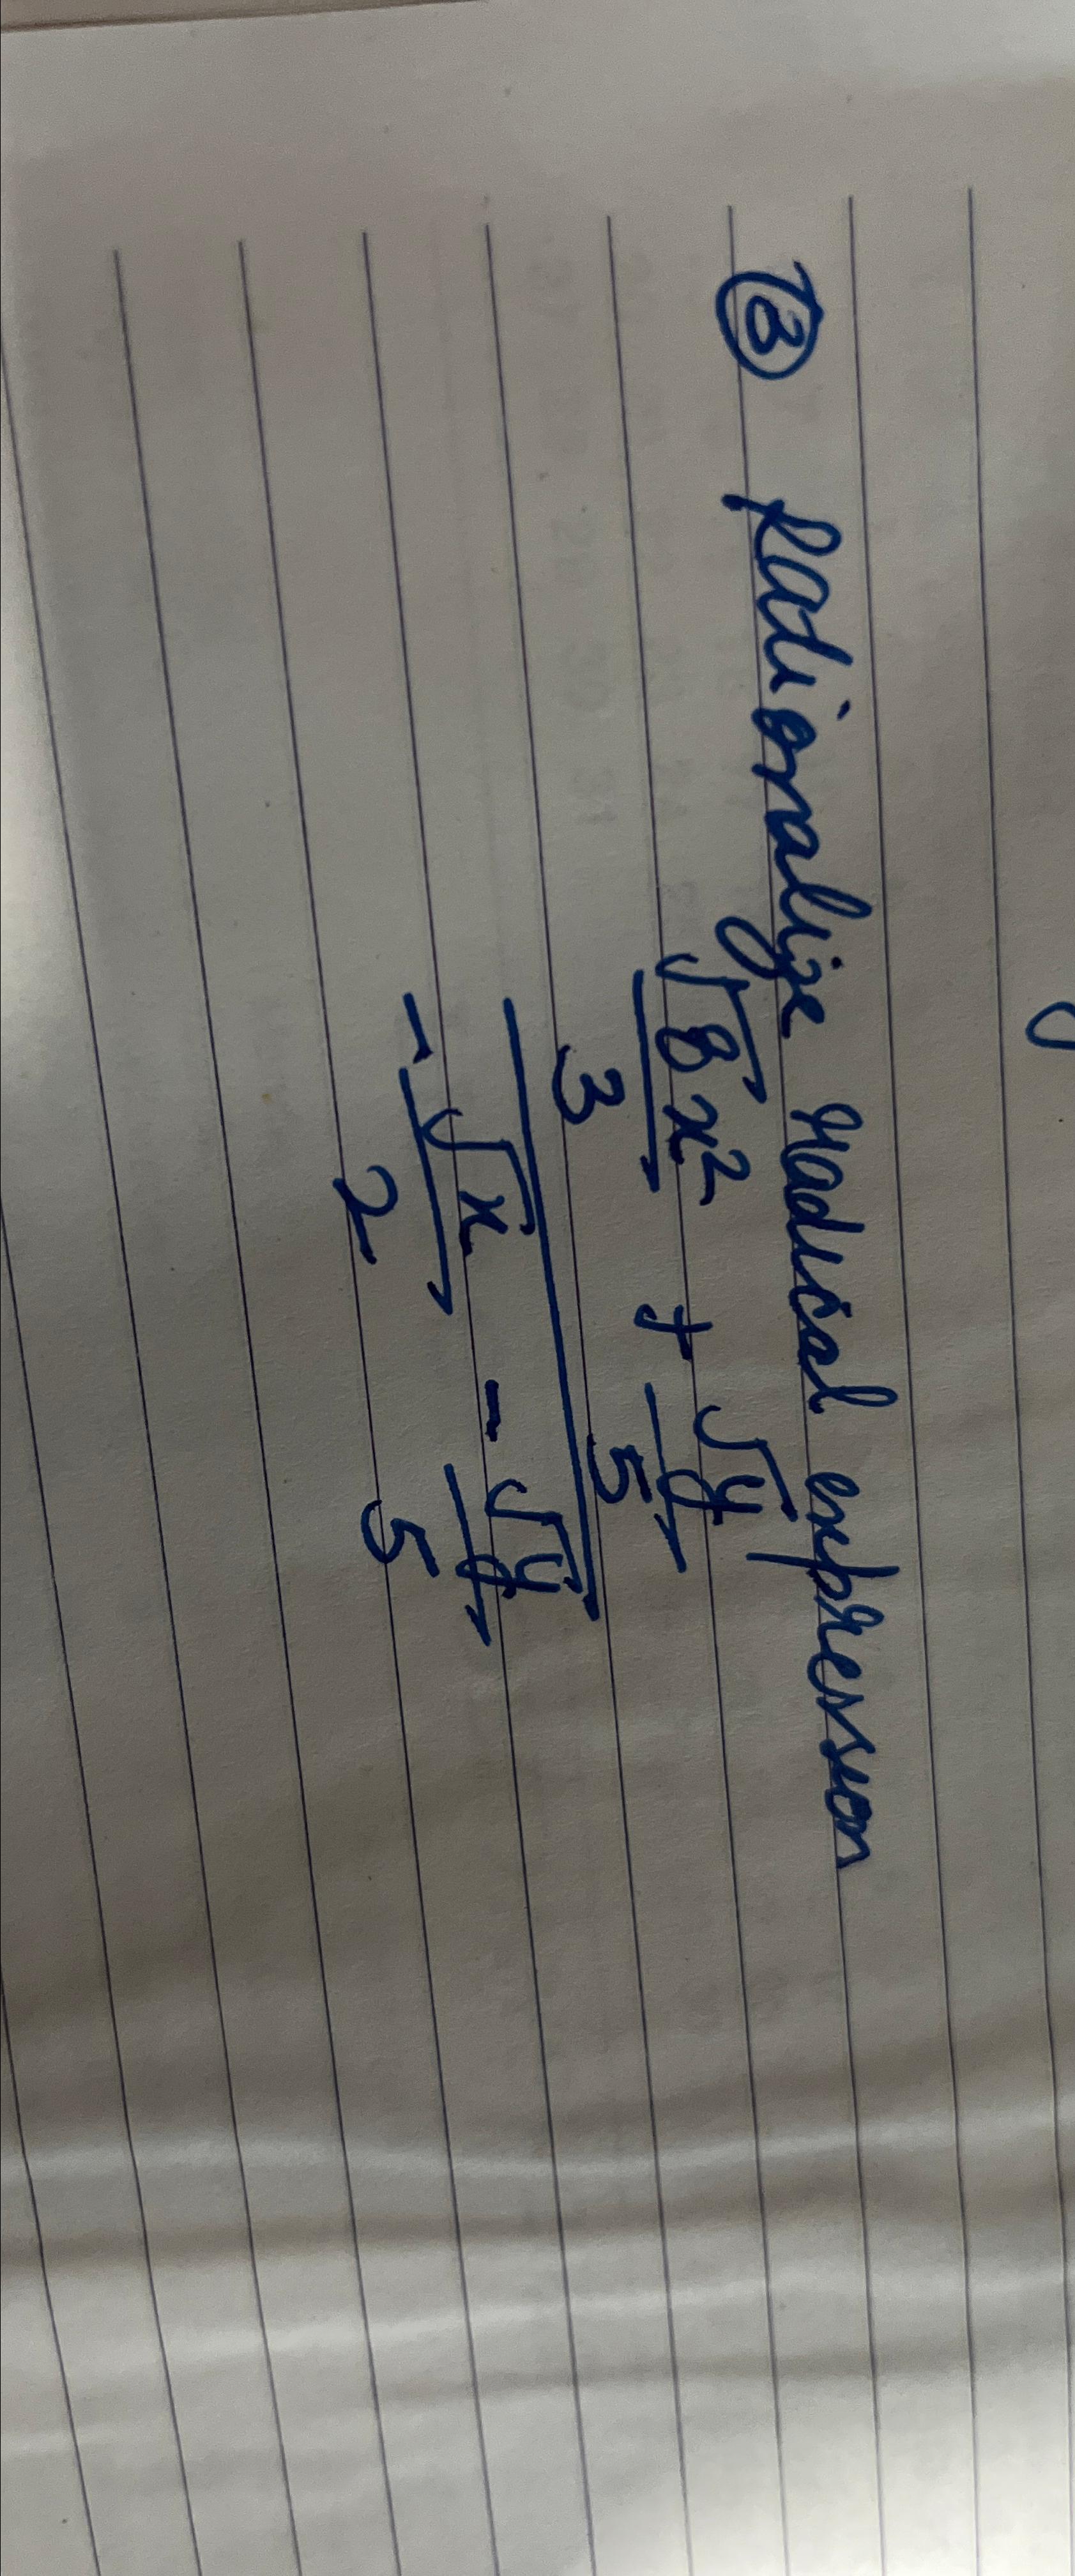 ③ Radionalize radical expression
√8x² + √y
3 5
-√x - √y
2 5